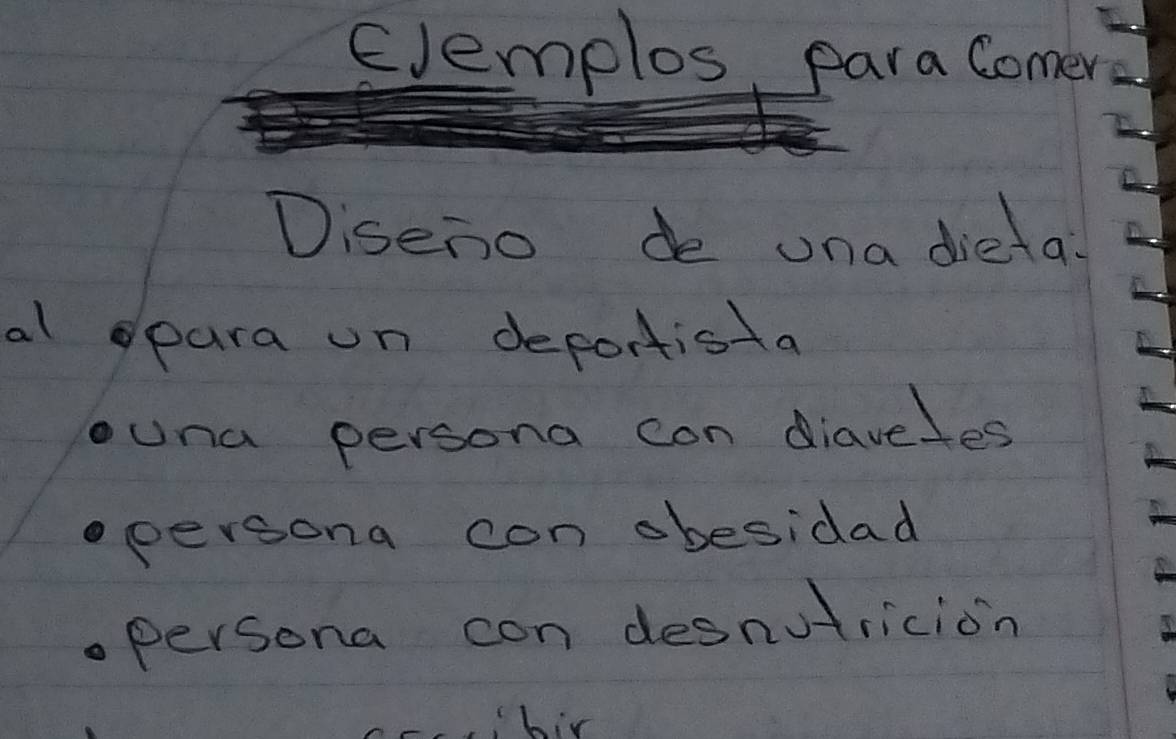 Ejemplos para comer
Diseño de una dieta:
al para un deportista
• una persona con diavetes
• persona con obesidad
• persona con desnutrición